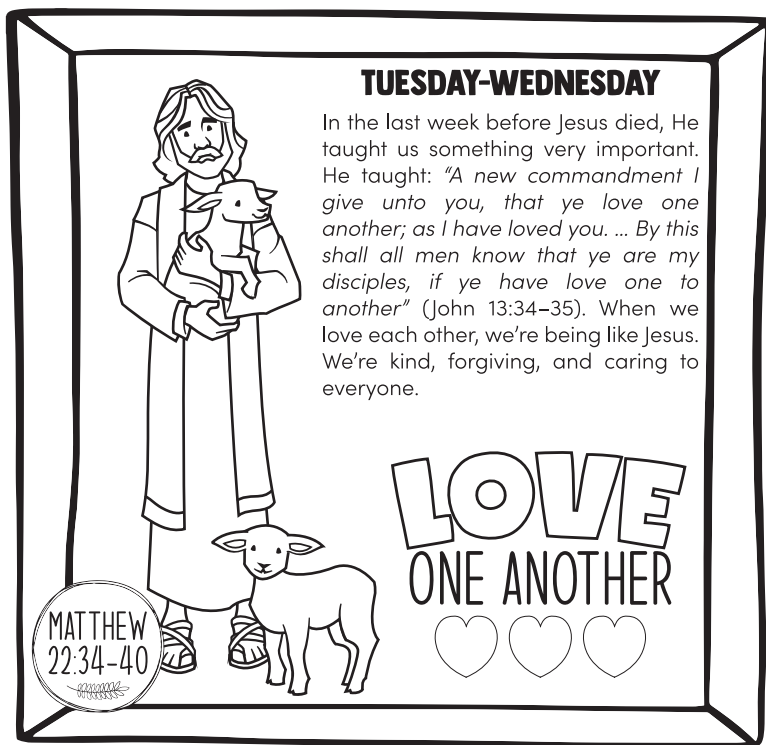 TUESDAY-WEDNESDAY
In the last week before Jesus died, He
taught us something very important.
He taught: “A new commandment I
give unto you, that ye love one
another; as I have loved you. ... By this
shall all men know that ye are my
disciples, if ye have love one to
another” (John 13:34–35). When we
love each other, we’re being like Jesus.
We’re kind, forgiving, and caring to
everyone.
LOVE
ONE ANOTHER
MATTHEW
22:34-40